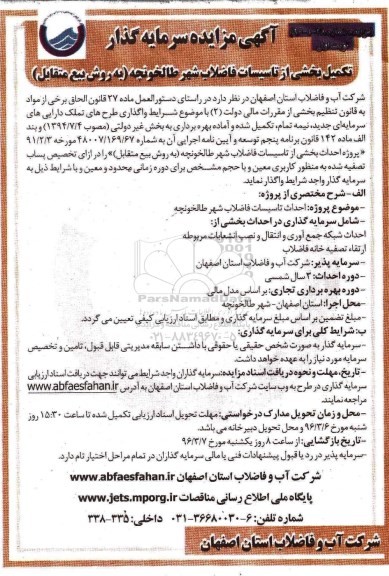 آگهی مزایده سرمایه گذار
تکمیل بخشی از تاسیسات فاضلاب شهر طالخونچه (به روش بیع متقابل)
شرکت آب و فاضلاب استان اصفهان در نظر دارد در راستای دستورالعمل ماده ۲۷ قانون الحاق برخی از مواد
به قانون تنظیم بخشی از مقررات مالی دولت (۲) با موضوع شرایط واگذاری طرح های تملک دارایی های
سرمایه‌ای جدید، نیمه تمام، تکمیل شده و آماده بهره برداری به بخش غیر دولتی (مصوب ۱۳۹۴/۷/۴) و بند
الف ماده ۱۴۲ قانون برنامه پنجم توسعه و آیین نامه اجرایی آن به شماره ۴۸۰۰۷/۱۶۹/۶۷ مورخه ۹۱/۲/۳
«پروژه احداث بخشی از تاسیسات فاضلاب شهر طالخونچه (به روش بیع متقابل)» را در ازای تخصیص پساب
تصفیه شده به منظور کاربری معین و با حجم مشخص برای دوره زمانی محدود و معین و با شرایط ذیل به
سرمایه گذار واجد شرایط واگذار نماید.
الف- شرح مختصری از پروژه:
- موضوع پروژه: احداث تاسیسات فاضلاب شهر طالخونچه
- شامل سرمایه گذاری در احداث بخشی از:
احداث شبکه جمع آوری و انتقال و نصب انشعابات مربوطه
ارتقاء تصفیه خانه فاضلاب
- سرمایه پذیر: شرکت آب و فاضلاب استان اصفهان
- دوره احداث: ۳ سال شمسی
- دوره بهره برداری تجاری: بر اساس مدل مالی
- محل اجرا: استان اصفهان - شهر طالخونچه
- مبلغ تضمین بر اساس مبلغ سرمایه گذاری و مطابق اسناد ارزیابی کیفی تعیین می گردد.
ب: شرایط کلی برای سرمایه گذاری:
- سرمایه گذار به صورت شخص حقیقی یا حقوقی با داشتن سابقه مدیریتی قابل قبول، تامین و تخصیص
سرمایه مورد نیاز را به عهده خواهد داشت.
- تاریخ، مهلت و نحوه دریافت اسناد مزایده: سرمایه گذاران واجد شرایط می توانند جهت دریافت اسناد ارزیابی
سرمایه گذاری در طرح به وب سایت شرکت آب و فاضلاب استان اصفهان به آدرس www.abfaesfahan.ir
مراجعه نمایند.
- محل و زمان تحویل مدارک درخواستی: مهلت تحویل اسناد ارزیابی تکمیل شده تا ساعت ۱۵:۳۰ روز
شنبه مورخ ۹۶/۳/۶ و محل تحویل دبیرخانه می باشد.
- تاریخ بازگشایی: از ساعت ۸ روز یکشنبه مورخ ۹۶/۳/۷
- سرمایه پذیر در رد یا قبول پیشنهادات فنی یا مالی سرمایه گذاران در تمام مراحل اختیار تام دارد.
شرکت آب و فاضلاب استان اصفهان www.abfaesfahan.ir
پایگاه ملی اطلاع رسانی مناقصات www.jets.mporg.ir
شماره تلفن: ۶-۳۶۶۸۰۰۳۰-۰۳۱ داخلی: ۳۳۵-۳۳۸
شرکت آب و فاضلاب استان اصفهان